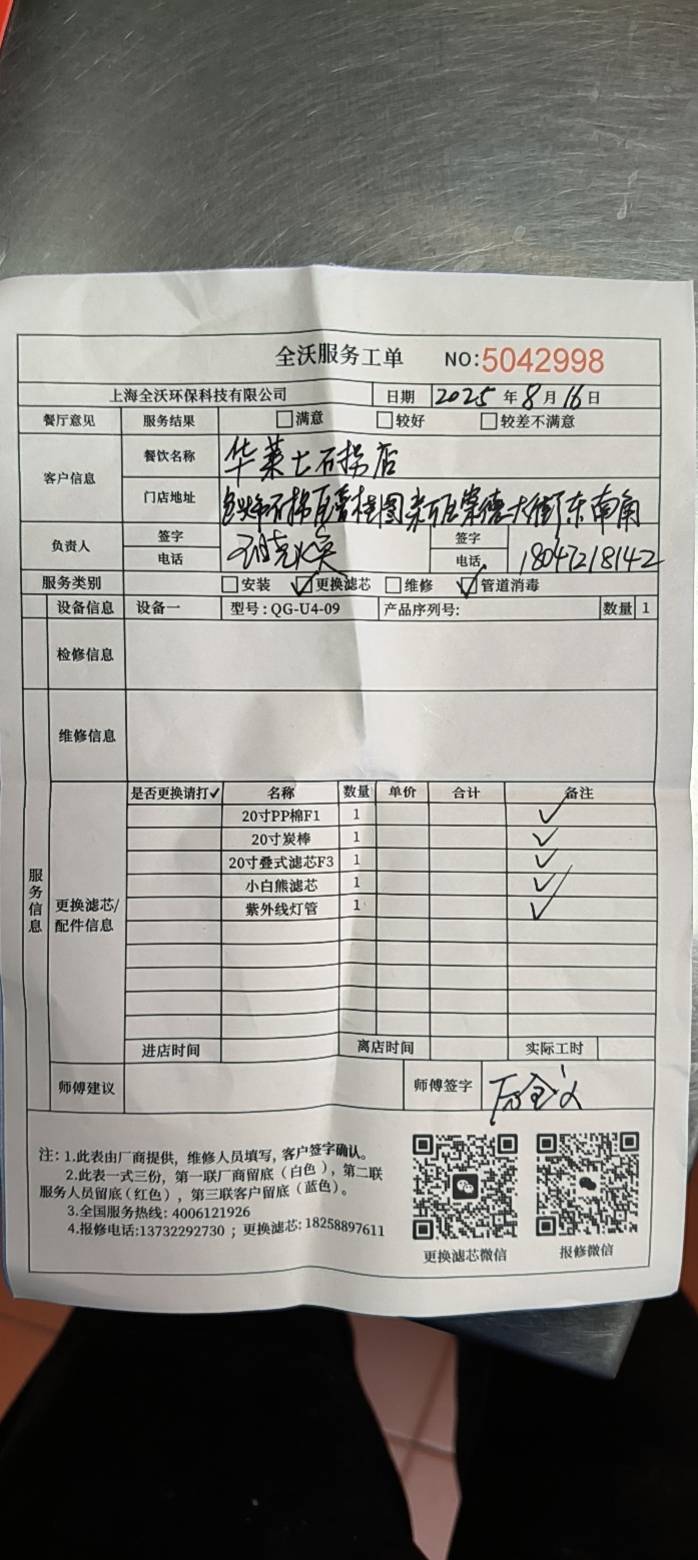 全沃服务工单 NO:5042998
上海全沃环保科技有限公司 日期 2025 年 8 月 16 日
餐厅意见 服务结果 满意 较好 较差不满意
客户信息
餐饮名称 华莱士石拐店
门店地址 石拐区 崇德大街东南角
负责人
签字 签字
电话 电话 18047218142
服务类别 安装 ✓更换滤芯 维修 ✓管道消毒
设备信息 设备一 型号:QG-U4-09 产品序列号: 数量 1
检修信息
维修信息
服务信息
更换滤芯/
配件信息
是否更换请打✓ 名称 数量 单价 合计 备注
20寸PP棉F1 1 ✓
20寸炭棒 1 ✓
20寸叠式滤芯F3 1 ✓
小白熊滤芯 1 ✓
紫外线灯管 1 ✓
进店时间 离店时间 实际工时
师傅建议 师傅签字
注: 1.此表由厂商提供，维修人员填写，客户签字确认。
2.此表一式三份，第一联厂商留底（白色），第二联
服务人员留底(红色)，第三联客户留底（蓝色）。
3.全国服务热线: 4006121926
4.报修电话:13732292730 ; 更换滤芯: 18258897611
更换滤芯微信 报修微信